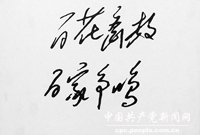 百花齐放
百家争鸣
中国共产党新闻网
cpc.people.com.cn